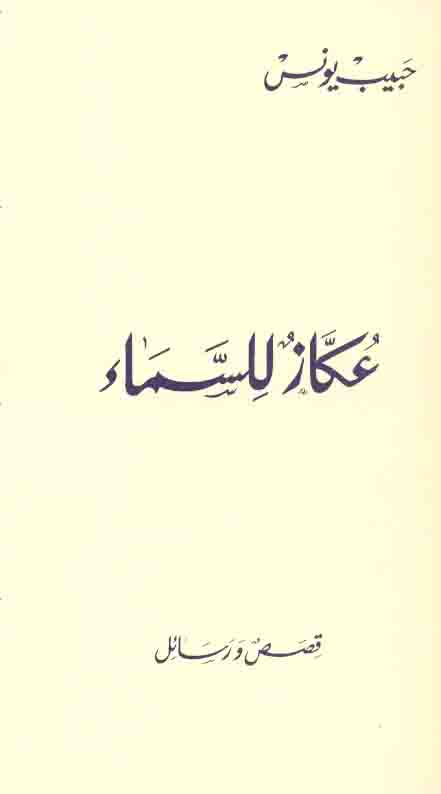 حبيب يونس
عُكَّازٌ لِلسَّمَاءِ
قصص ورسائل